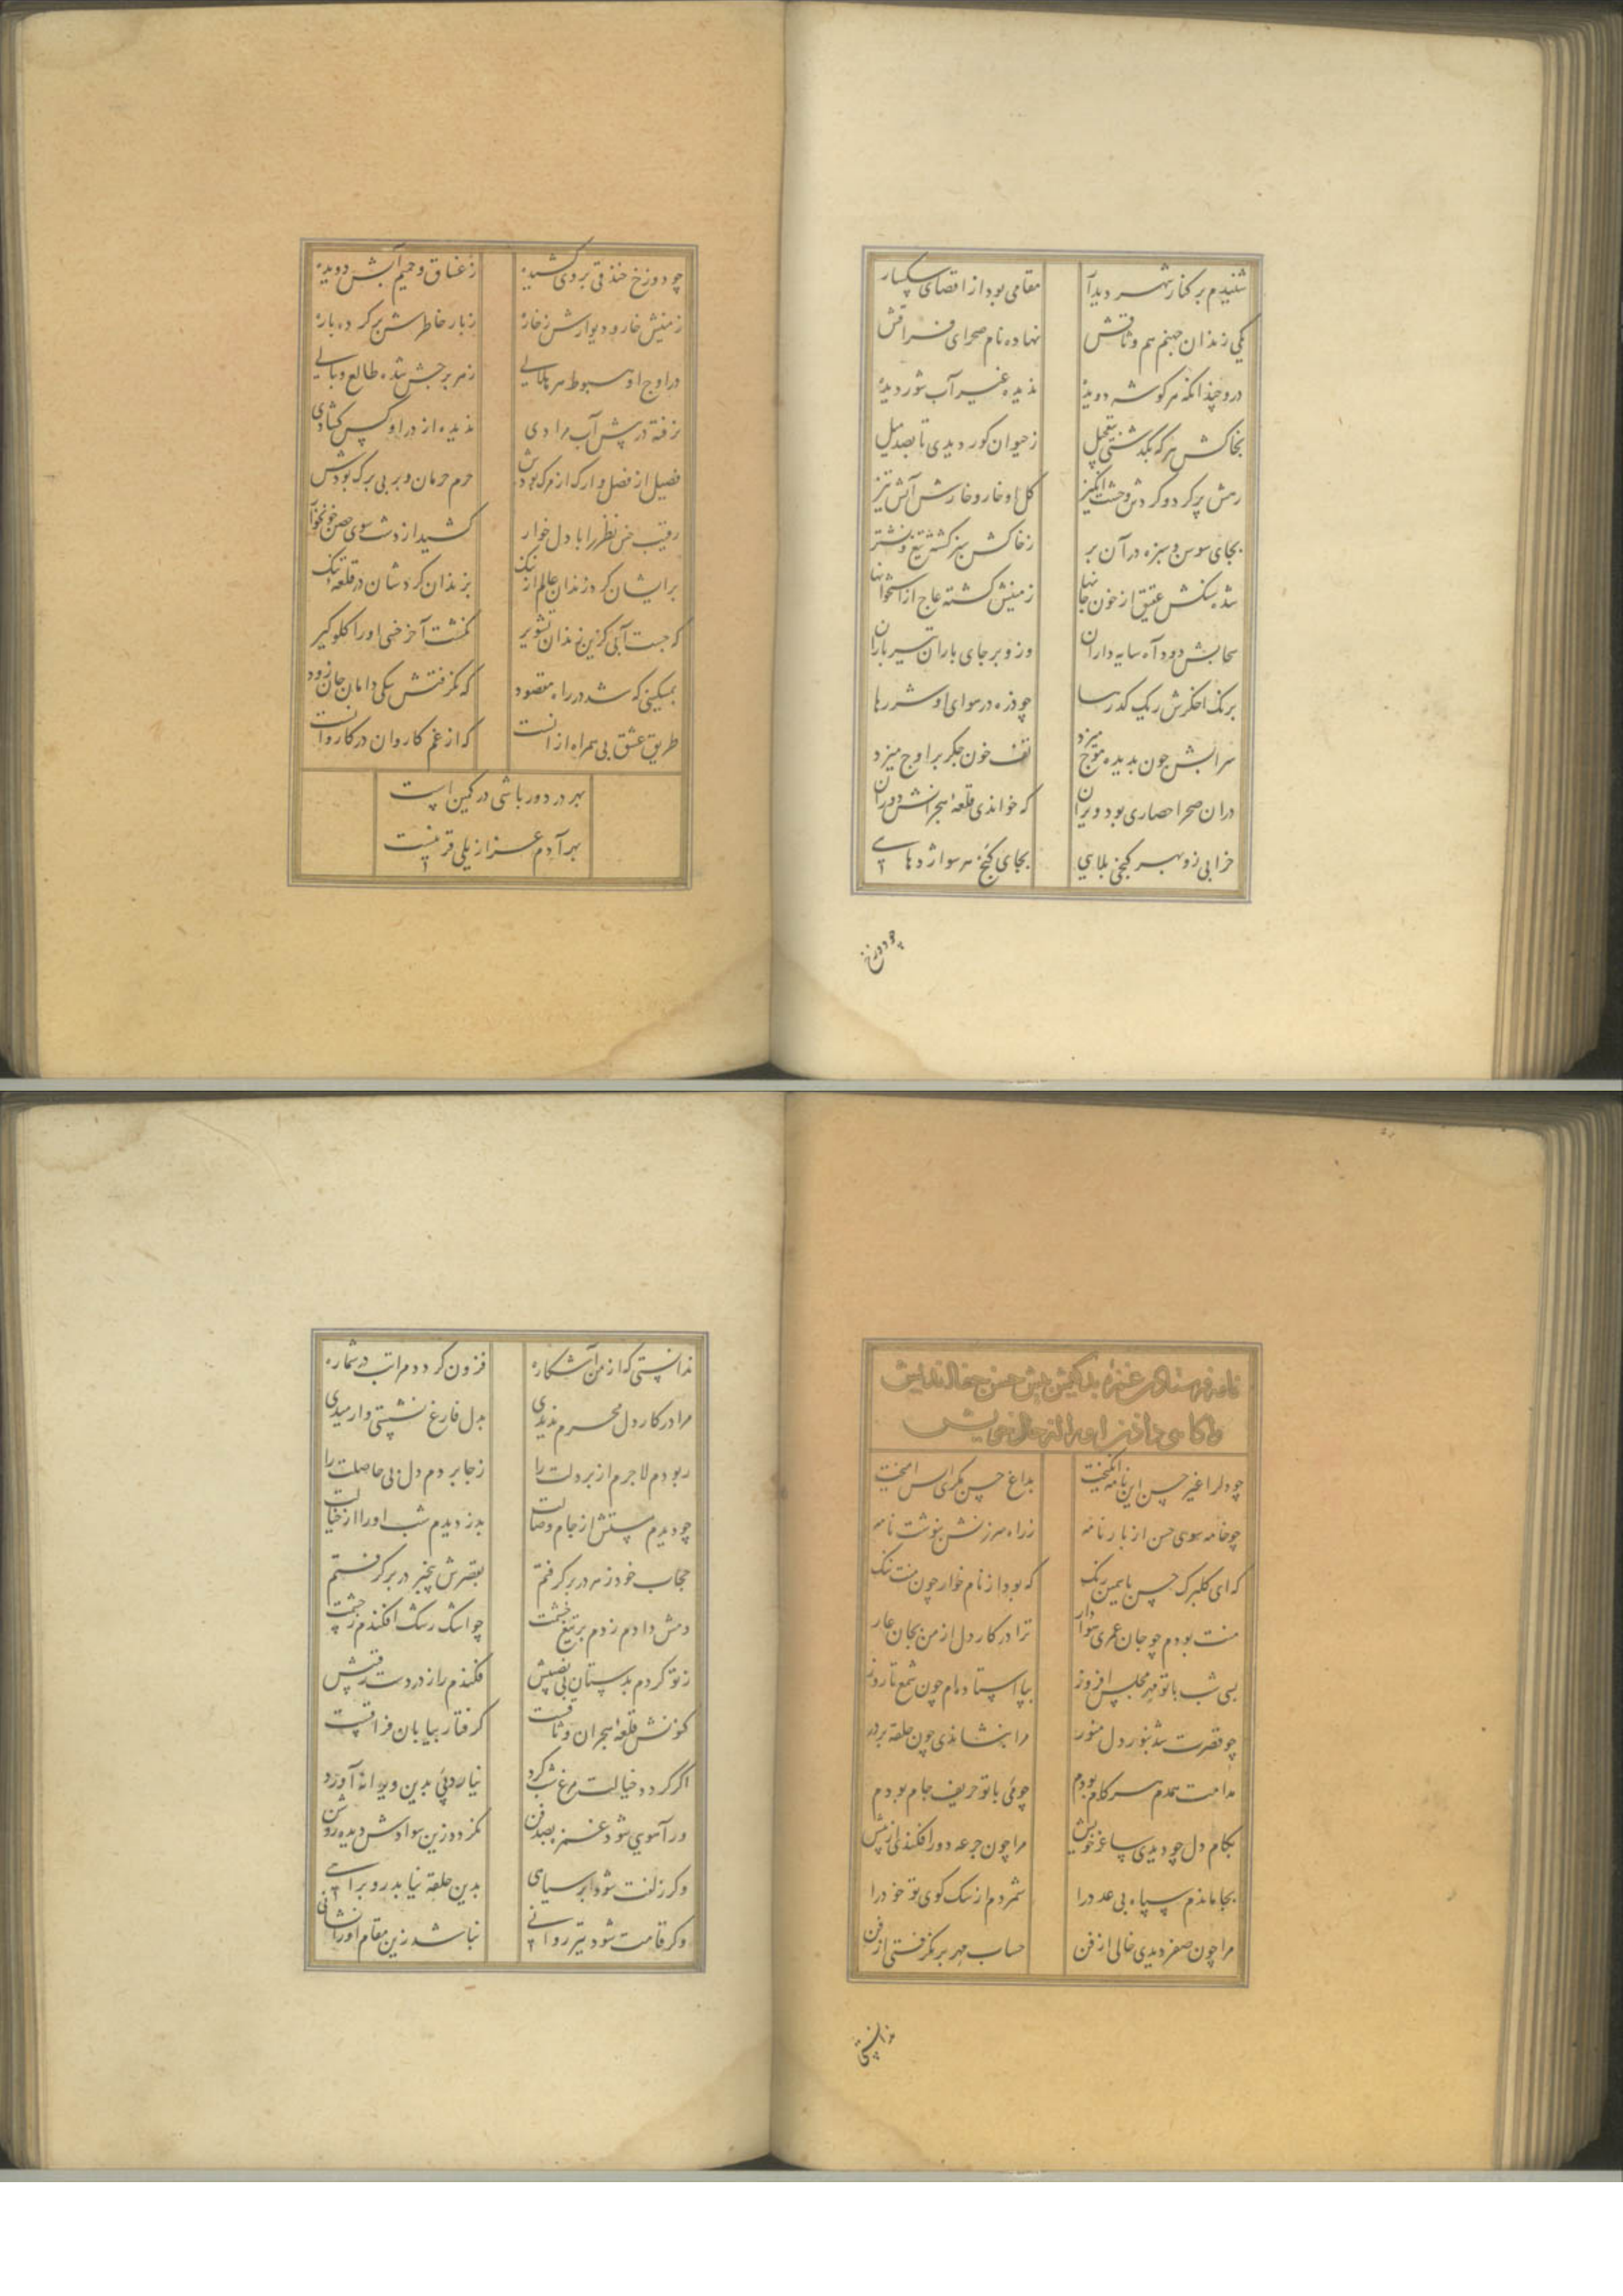 شنیدم بر کنار شهر دیدار مقامی بود از اقصای سکسار
یکی زندان جهنم هم وثاقش نهاده نام صحرای فراقش
درو چندانکه هر گوشه دویده ندیده غیر آب شور دیده
بخاکش هر که بگذشتی بتعجیل ز حیوان کور دیدی تا بصد میل
رمش پر کرد و کردش وحشت انگیز گل او خار و خارش آتش تیز
بجای سوسن و سبزه در آن بر ز خاکش سبز گشته تیغ و نشتر
شده سنگش عقیق از خون جانها زمینش گشته عاج از استخوانها
سحابش دود آه سایه داران وزو بر جای باران تیر باران
برنک اخگرش ریک گذرها چو ذره در هوای او شررها
سرابش چون بدیده موج میزد تف خون جگر بر اوج میزد
در آن صحرا حصاری بود ویران که خواندی قلعه هجرانش دوران
خرابی زو بهر کنجی بلایی بجای گنج هر سو اژدهایی
چو دوزخ
چو دوزخ خندقی بر وی کشیده ز غساق و حمیم آبش دویده
زمینش خار و دیوارش ز خاره ز بار خاطرش بر کرده باره
در اوج او هبوط هر بلایی ز هر برجش شده طالع وبایی
نرفته در پیش آب مرادی ندیده از در او کس گشادی
فصیل از فصل و ارک از مرک بودش حرم حرمان و بر بی برک بودش
رقیب حسن نظر را با دل خوار کشید از دشت سوی حصن خونخوار
بر ایشان کرد زندان عالم از ننک بزندان کردشان در قلعه تنک
که جست آبی کزین زندان تشویر نگشت آخر خسی او را گلوگیر
بمسکینی که شد در راه مقصود که نگرفتش سکی دامان جان زود
طریق عشق بی همراه از آنست که از غم کاروان در کاروانست
بهر در دور باشی در کمین است
بهر آدم عزازیلی قرینست
نامه فرستادن غمزه بدکیش پیش حسن جفا اندیش
و آگاهی دادن او را از حال خویش
چو دلرا غیر حسن این نامه انگیخت بداغ حسن مکری
چو خامه سوی حسن از بار نامه ز راه سرزنش بنوشت نامه
که ای گلبرک حسن یاسمین رنک که بود از نام خوار چون منت ننک
منت بودم چو جان عمری هوادار ترا در کار دل از من بجان عار
بسی شب با تو مهر مجلس افروز بپا استاده‌ام چون شمع تا روز
چو قصرت شد بنور دل منور مرا بنشاندی چون حلقه بر در
مدامت همدم سر کام بودم چو می با تو حریف جام بودم
بکام دل چو دیدی ساغر خویش مرا چون جرعه دور افکندی از پیش
بجا ماندم سپاه بی عدد را شمردم از سک کوی تو خود را
مرا چون صفر دیدی خالی از فن حساب مهر برنگرفتی از من
ندانستی
ندانستی که از من آشکاره فزون گردد مراتب در شماره
مرا در کار دل محرم ندیدی بدل فارغ نشستی وارمیدی
ربودم لاجرم از بر دلت را ز جا بردم دل بی حاصلت را
چو دیدم مستش از جام وصالت بدزدیدم شب او را از خیالت
حجاب خود ز سر در بر گرفتم بقصرش بیخبر در بر گرفتم
دمش دادم زدم بر تیغ خشمت چو اشک رشک افکندم ز چشمت
ز تو کردم بدستان بی نصیبش فکندم راز در دست رقیبش
کنونش قلعه هجران وثاقست گرفتار بیابان فراقست
اگر گردد خیالت مرغ شب گرد نیارد پی بدین ویرانه آورد
ور آهوی شود غمزه بصد فن نگردد زین سوادش دیده روشن
وگر زلفت شود ابر سیاهی بدین حلقه نیابد رو براهی
وگر قامت شود تیر روانی نباشد زین مقام او را نشانی